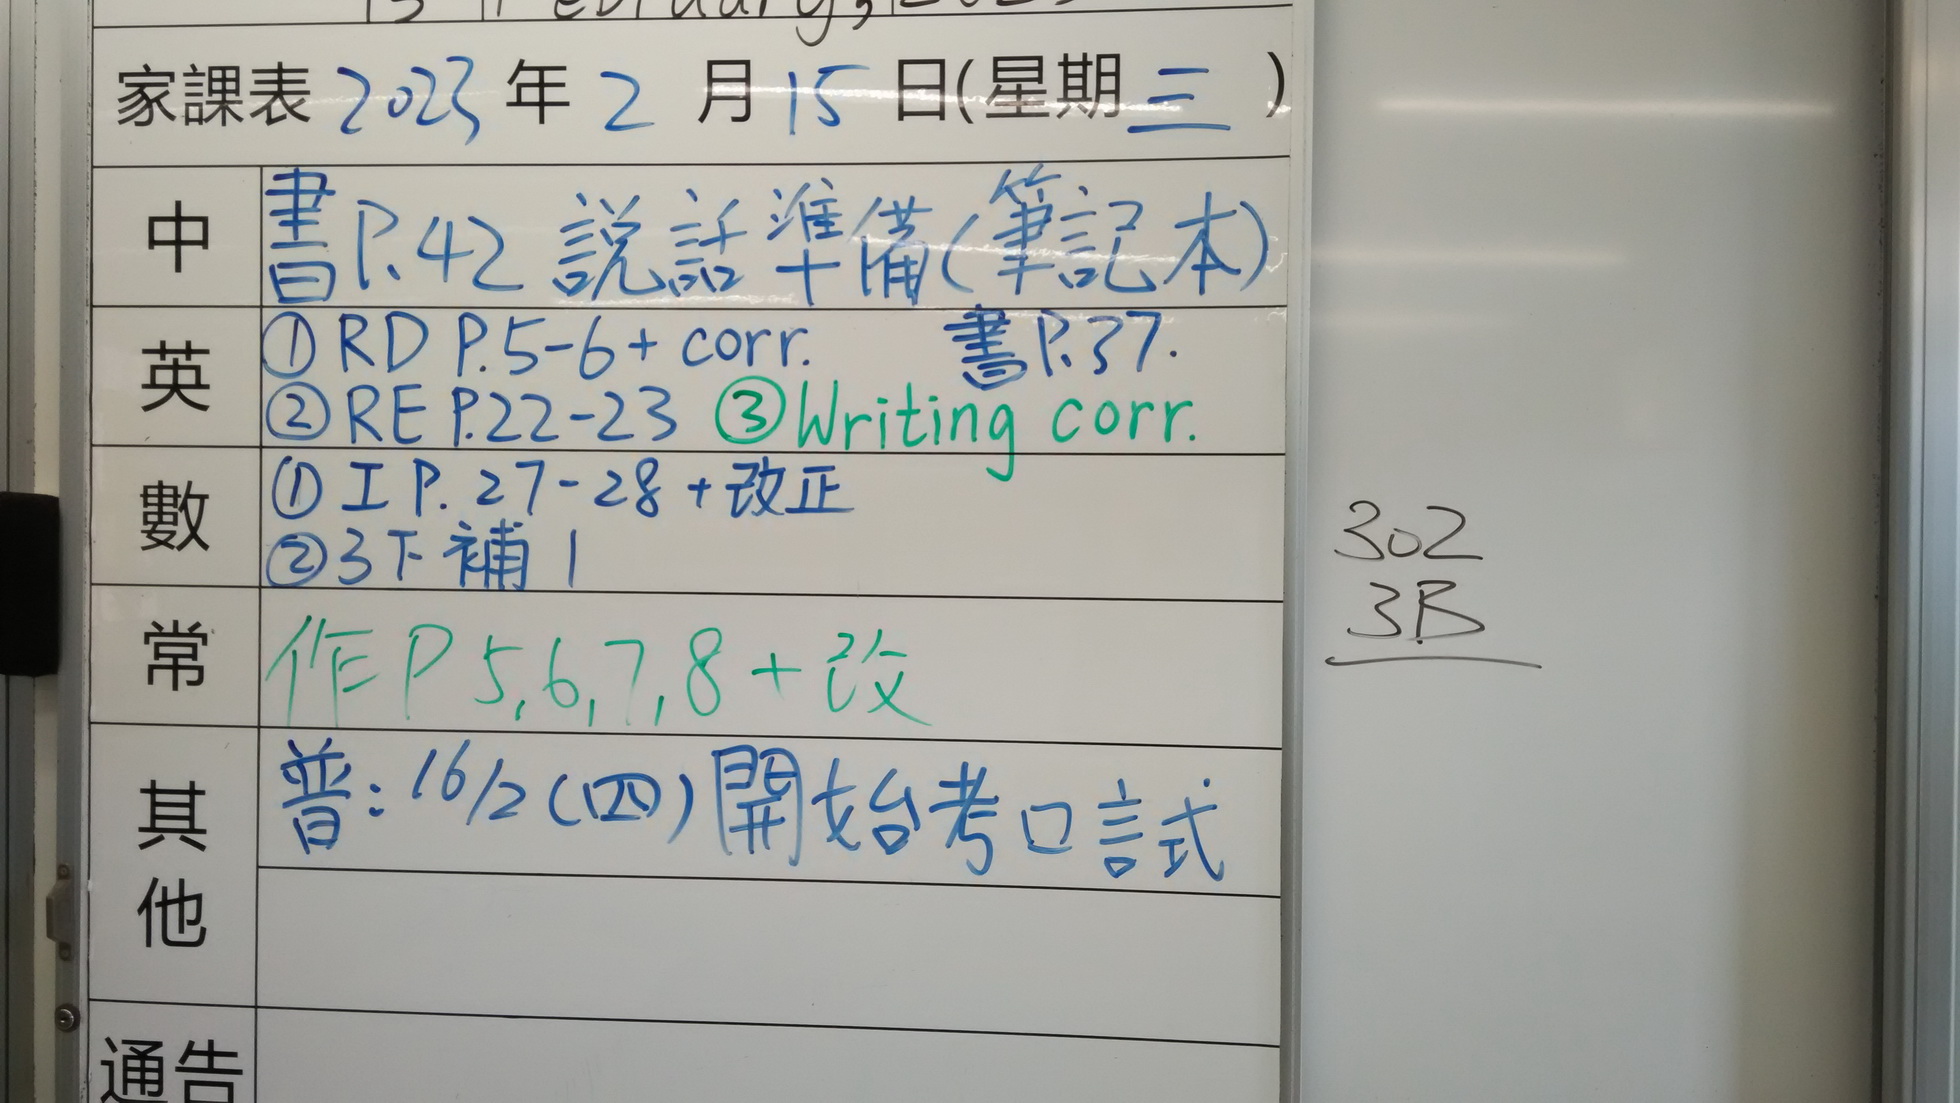 15 February, 2023
家課表 2023 年 2 月 15 日(星期 三 )
中 書P.42 説話準備(筆記本)
英 ①RD P.5-6+ corr. 書P.37.
②RE P.22-23 ③Writing corr.
數 ①工 P. 27-28 +改正
②3下補1
常 作P 5,6,7,8+改
其他 普:16/2(四)開始考口試
通告
302
3B